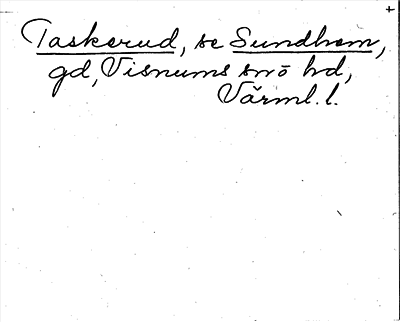 Taskerud, se Sundhem,
gd, Visnums snö hd,
Värml. l.